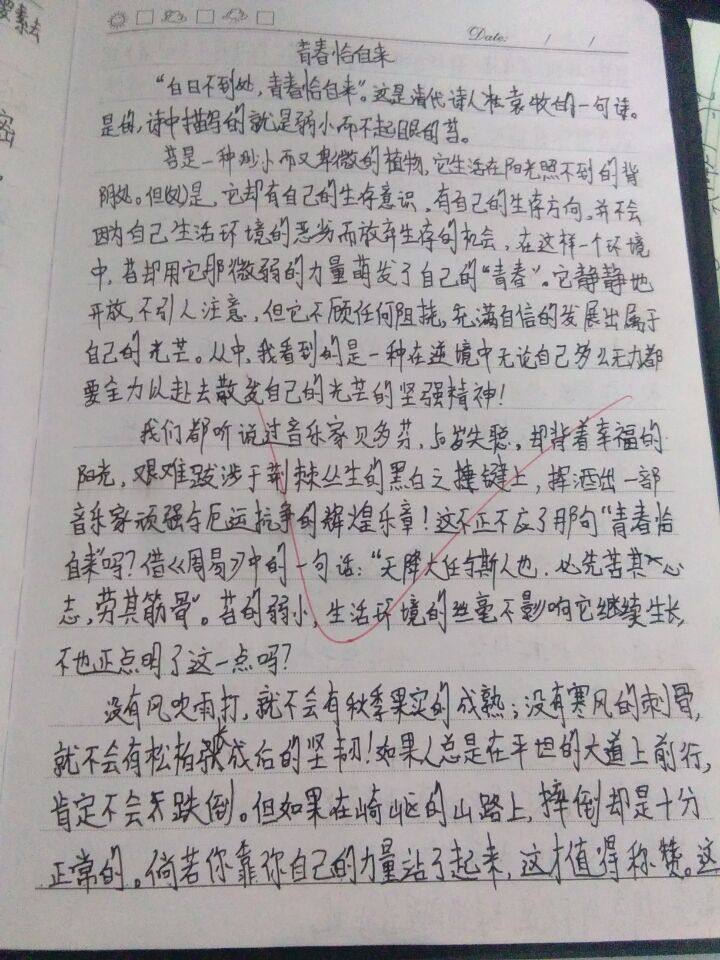 Date: / /
青春恰自来
"白日不到处,青春恰自来"。这是清代诗人袁牧的一句诗。
是的,诗中描写的就是弱小而不起眼的苔。
苔是一种渺小而又卑微的植物,它生活在阳光照不到的背
阴处。但是,它却有自己的生存意识,有自己的生存方向,并不会
因为自己生活环境的恶劣而放弃生存的机会,在这样一个环境
中,苔却用它那微弱的力量萌发了自己的"青春"。它静静地
开放,不引人注意,但它不顾任何阻挠,充满自信的发展出属于
自己的光芒。从中,我看到的是一种在逆境中无论自己多么无力都
要全力以赴去散发自己的光芒的坚强精神!
我们都听说过音乐家贝多芬,岁失聪。却背着幸福的
阳光,艰难跋涉于荆棘丛生的黑白之键上,挥洒出一部
音乐家顽强与厄运抗争的辉煌乐章!这不正不应了那句"青春恰
自来"吗?借《周易》中的一句话:"天降大任与斯人也,必先苦其心
志,劳其筋骨"。苔的弱小,生活环境的丝毫不影响它继续生长,
不也正点明了这一点吗?
没有风吹雨打,就不会有秋季果实的成熟;没有寒风的刺骨,
就不会有松柏成后的坚韧!如果人总是在平坦的大道上前行,
肯定不会跌倒。但如果在崎岖的山路上,摔倒却是十分
正常的。倘若你靠你自己的力量站了起来,这才值得称赞。这